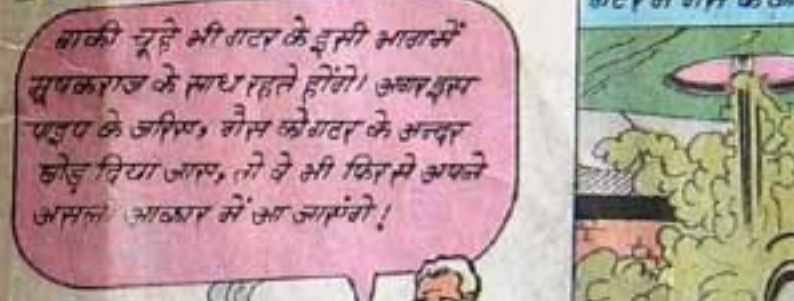 बाकी चूहे भी गटर के इसी भाग में
मूषकराज के साथ रहते होंगे। अगर इस
पाइप के जरिए, गैस को गटर के अन्दर
छोड़ दिया जाए, तो वे भी फिर से अपने
असली आकार में आ जाएंगे!